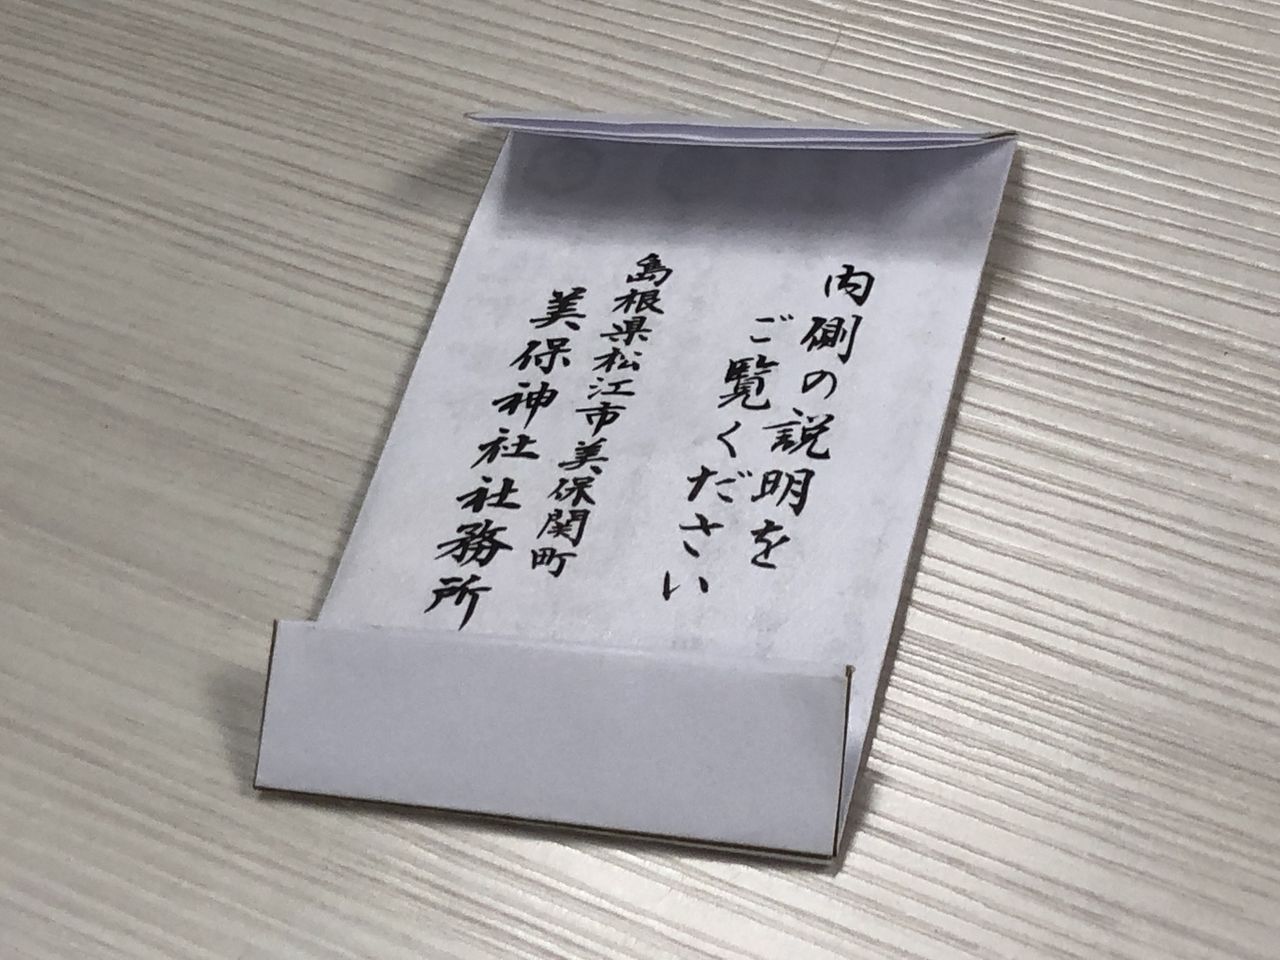 内側の説明を
ご覧ください
島根県松江市美保関町
美保神社社務所